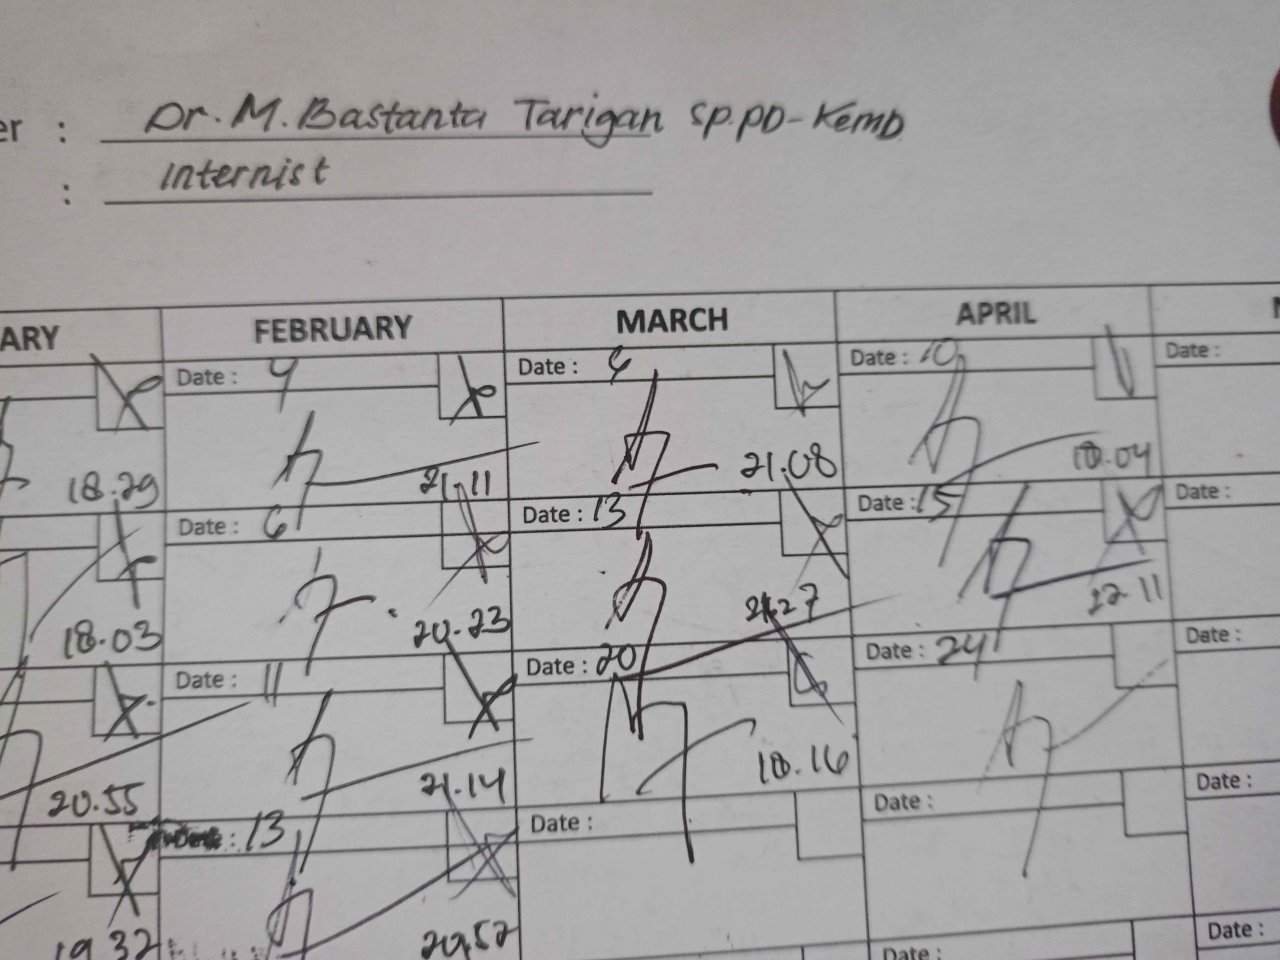 er : Dr. M. Bastanta Tarigan SP.PD-Kemd
: Internist
ARY FEBRUARY MARCH APRIL
Date : 4 Date : Date : 10 Date :
18.29 21.11 21.08 18.04
Date : 6 Date : 13 Date : 15 Date :
18.03 20.23 27 22 11
Date : 11 Date : 20 Date : 24 Date :
20.55 21.14 18.16
: 13 Date : Date : Date :
19 32 20.52
Date : Date :